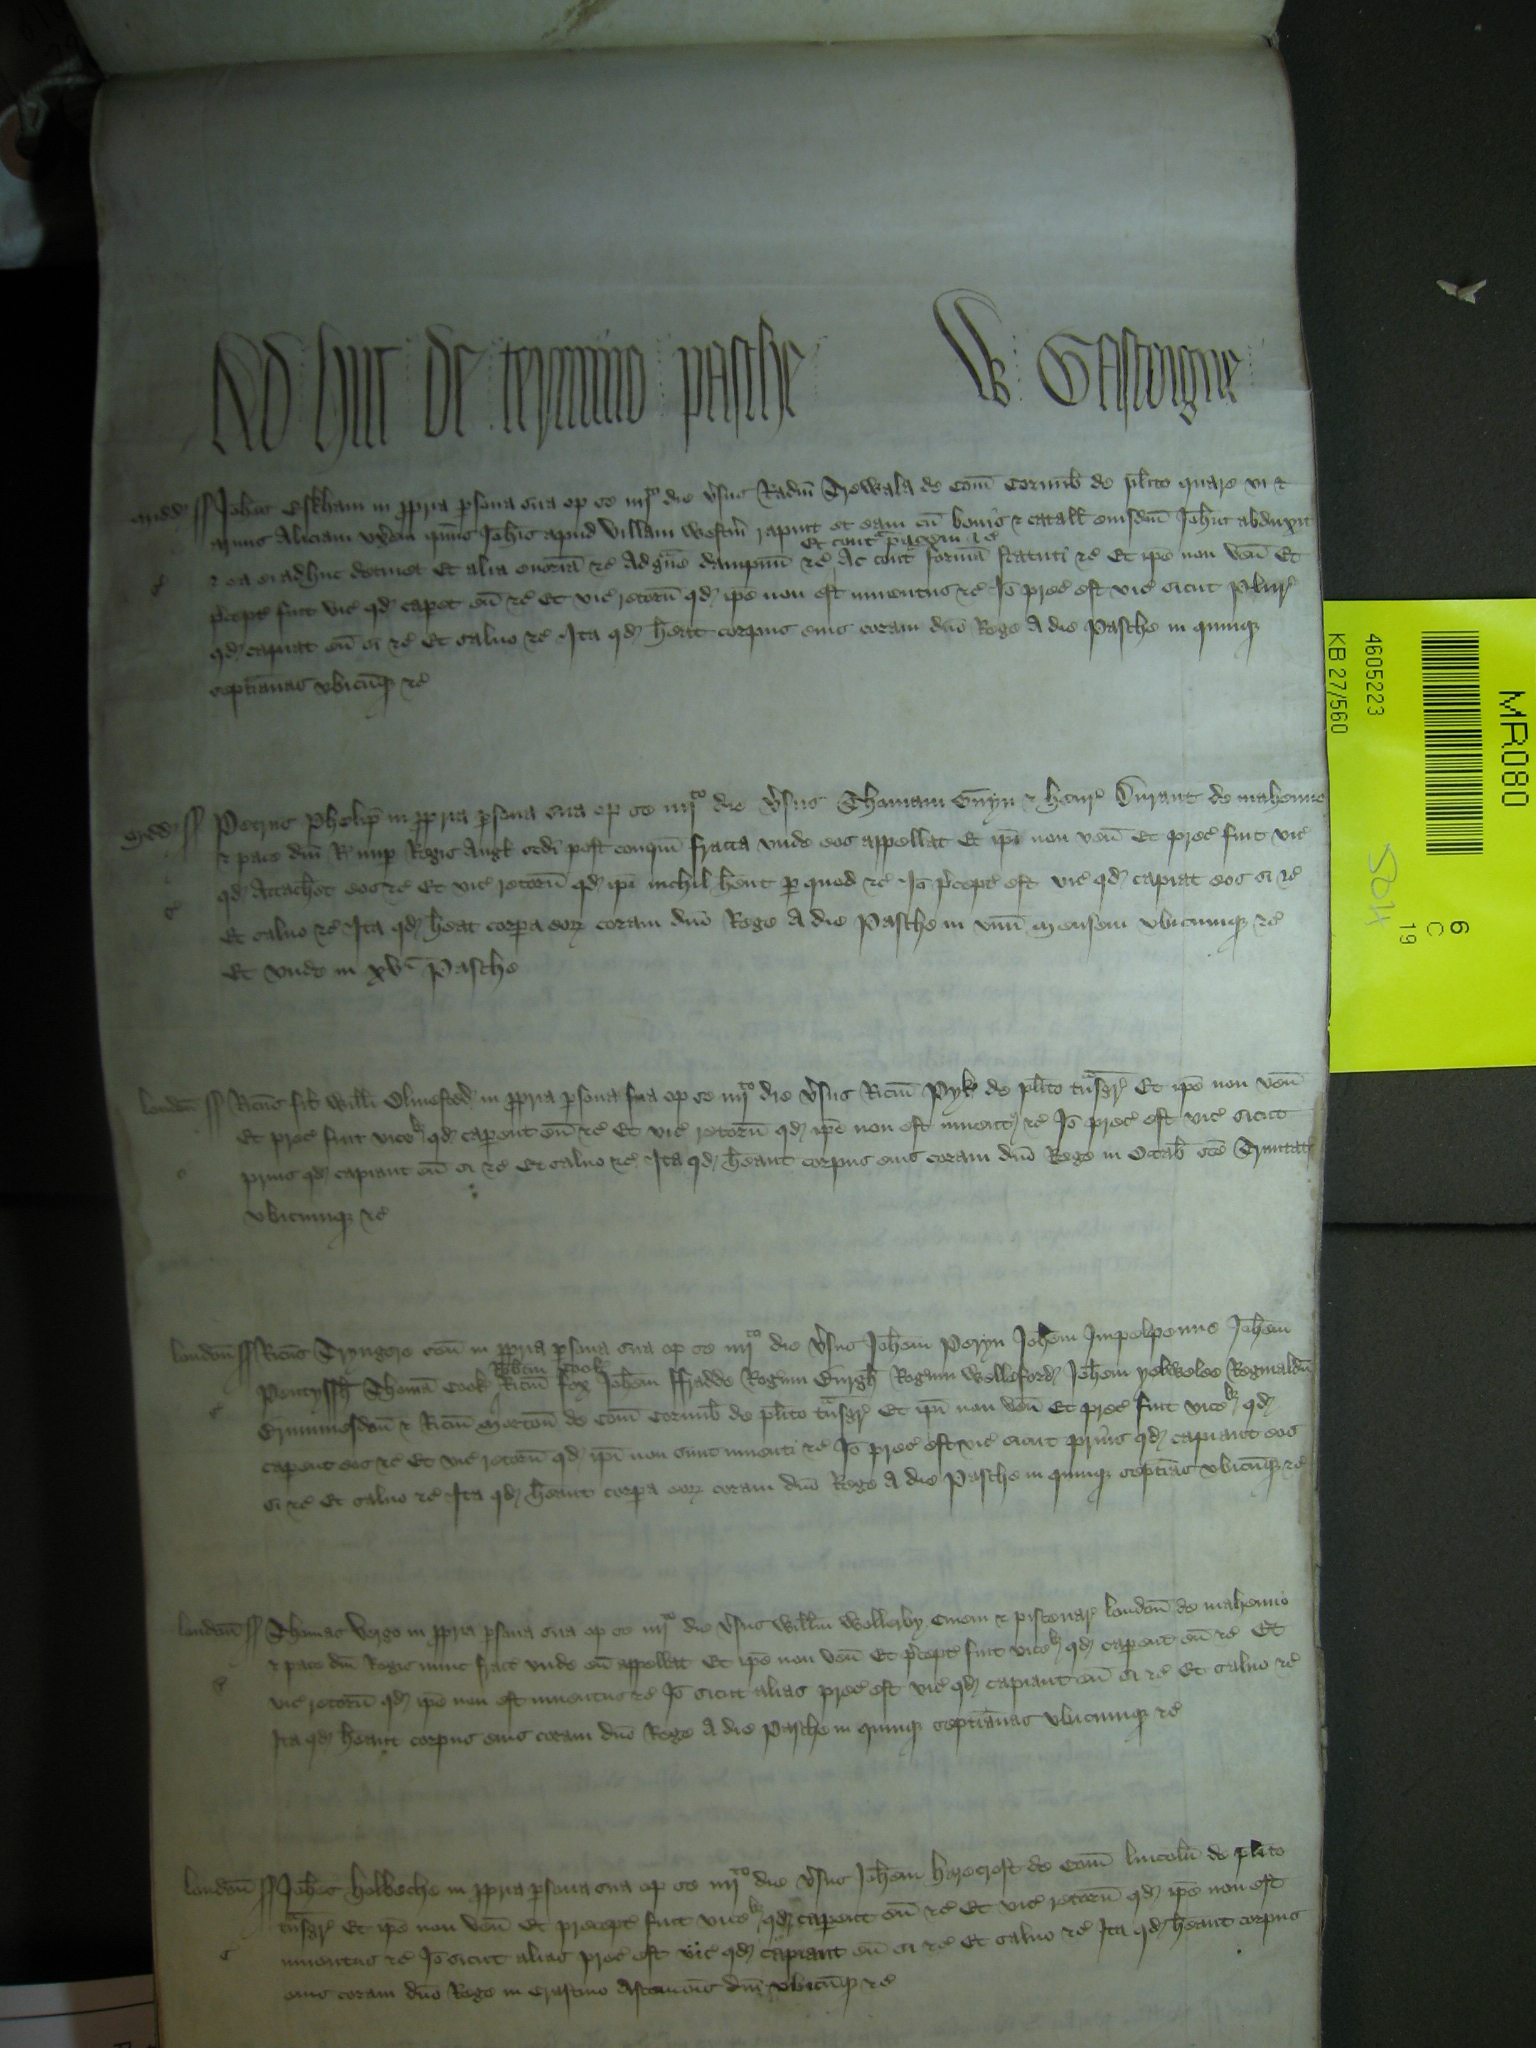 Ad huc de termino pasche W Gascoigne
Midd ss Johes Eskham in ppria psona sua op se iiijto die vsus Radm Trewala de Com Cornub de plito quare vi &
Aliciam uxem ipius Johis apud villam Westm rapuit et eam cu bonis & catall eiusdem Johis abduxit
Et cont pacem &c
& ea ei adhuc detinet Et alia enormia &c Ad gue dampnu &c Ac cont forma statuti &c Et ipe non ven Et
pcept fuit vic qd capet eu &c Et vic retorn qd ipe non est inuentus &c Io prec est vic sicut plur
qd capiat eu si &c Et saluo &c Ita qd heat corpus eius coram dno Rege A die Pasche in quinq
septianas vbicuq &c
Midd ss Petrus Phelip in ppria psona sua op se iiijto die vsus Thomam Gwyn & Henr Durant de mahemio
& pace dni R nup Regis Angl scdi post conqm fracta vnde eos appellat Et ipi non ven Et prec fuit vic
qd Attachet eos &c Et vic retorn qd ipi nichil hent p quod &c Io pcept est vic qd capiat eos si &c
Et saluo &c Ita qd heat corpa eor coram dno Rege A die Pasche in vnu mensem vbicumq &c
Et vnde in xv Pasche
london ss Ricus fil Willi Olmested in ppria psona sua op se iiijto die vsus Ricm Pyk de plito tnsgr Et ipe non ven
Et prec fuit vice qd capent eu &c Et vic retorn qd ipe non est inuent &c Io prec est vic sicut
prius qd capiant eu si &c Et saluo &c Ita qd heant corpus eius coram dno Rege in Octab sce Trinitat
vbicumq &c
london ss Ricus Tryngore in ppria psona sua op se iiijto die vsus Johem Peryn Johem Impelpenne Johem
Robtm Cook
Thoma Cook Ricm Fox Johem ffradde Rogum Burgh Rogum Welleford Johem Reginaldu
& Ricm Morton de Com Cornub de plito tnsgr Et ipi non ven Et prec fuit vice qd
capent eos &c Et vic retorn qd ipi non sunt inuenti &c Io prec est vic sicut prius qd capiant eos
si &c Et saluo &c Ita qd heant corpa eor coram dno Rege A die Pasche in quinq septias vbicuq &c
london ss Thomas Verge in ppria psona sua op se iiijto die vsus Willm Wellerby Ciuem & pistenar london de mahemio
& pace dni Regis nunc fract vnde eu appellat Et ipe non ven Et pcept fuit vice qd capent eu &c Et
vic retorn qd ipe non est inuentus &c Io sicut alias prec est vic qd capiant eu si &c Et saluo &c
Ita qd heant corpus eius coram dno Rege A die Pasche in quinq septianas vbicumq &c
london ss Johes Holbeche in ppria psona sua op se iiijto die vsus Johem Harecroft de Com lincoln de plito
tnsgr Et ipe non ven Et precept fuit vice qd capent eu &c Et vic retorn qd ipe non est
inuentus &c Io sicut alias prec est vic qd capiant eu si &c Et saluo &c Ita qd heant corpus
eius coram dno Rege in Crastino Ascensionis dni vbicuq &c
MR080
4605223
KB 27/560
6
C
19